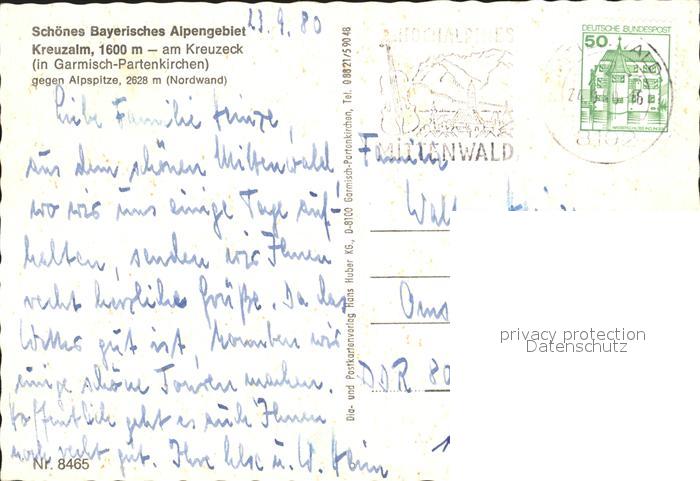 23.9.80
Schönes Bayerisches Alpengebiet
Kreuzalm, 1600 m – am Kreuzeck
(in Garmisch-Partenkirchen)
gegen Alpspitze, 2628 m (Nordwand)
Liebe Familie
aus dem schönen Mittenwald
wo wir uns einige Tage auf-
halten, senden wir Ihnen
recht herzliche Grüße. Da das
Wetter gut ist, konnten wir
einige schöne Touren machen.
Hoffentlich geht es auch Ihnen
noch recht gut. Ihre u. W.
Nr. 8465
Dia- und Postkartenverlag Hans Huber KG., D-8100 Garmisch-Partenkirchen, Tel. 08821/59048
HOCHALPINES
MITTENWALD
DEUTSCHE BUNDESPOST
50
Familie
DDR 80
privacy protection
Datenschutz